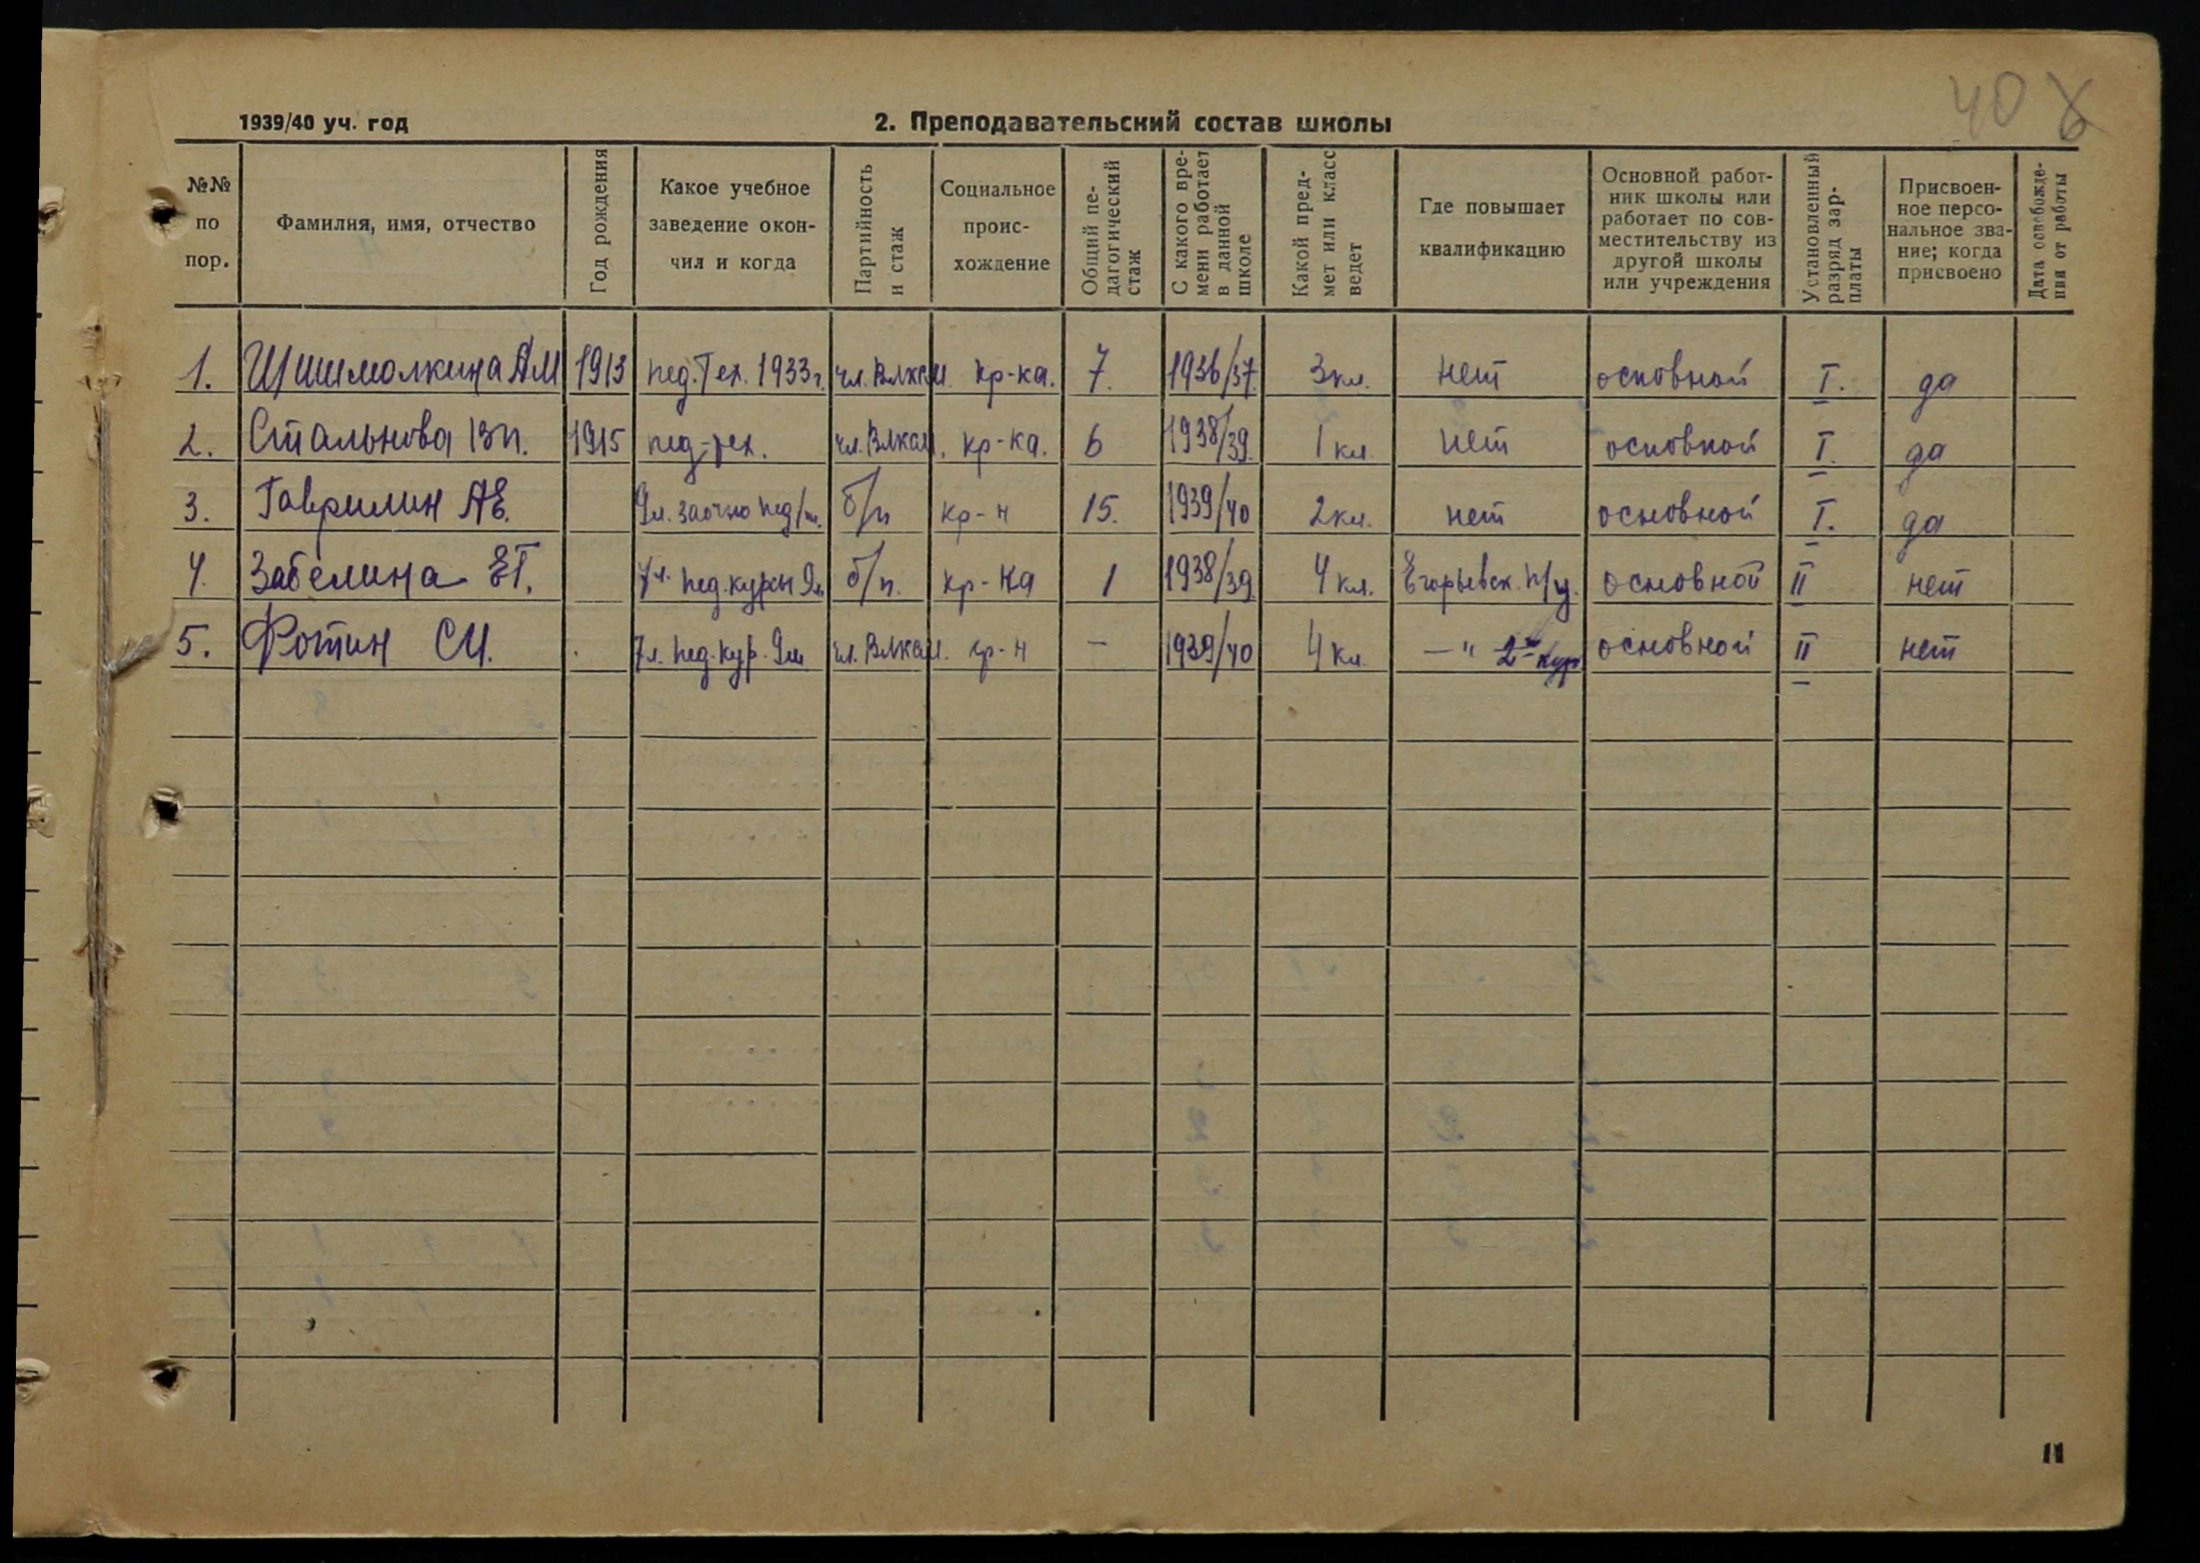 40
1939/40 уч. год
2. Преподавательский состав школы
№№ по пор.
Фамилия, имя, отчество
Год рождения
Какое учебное заведение окон-
чил и когда
Партийность и стаж
Социальное проис-
хождение
Общий пе-
дагогический стаж
С какого вре-
мени работает в данной школе
Какой пред-
мет или класс ведет
Где повышает квалификацию
Основной работ-
ник школы или работает по сов-
местительству из другой школы или учреждения
Установленный разряд зар-
платы
Присвоен-
ное персо-
нальное зва-
ние; когда присвоено
Дата освобожде-
ния от работы
1. АМ 1913 пед. Тех. 1933г. чл. Влксм. кр-ка. 7. 1936/37. 3 кл. нет основной I. да
2. Стальнова 1915 пед-тех. чл. Влксм. кр-ка. 6 1938/39. 1 кл. нет основной I. да
3. Гаврилин АЕ. заочно пед/т. б/п кр-н 15. 1939/40 2 кл. нет основной I. да
4. Забелина ЕГ. пед. курсы б/п. кр-ка 1 1938/39 4 кл. Егорьевск. п/у. основной II нет
5. Фотин СИ. пед. кур. чл. Влксм. кр-н — 1939/40 4 кл. — " 2й кур основной II нет
11